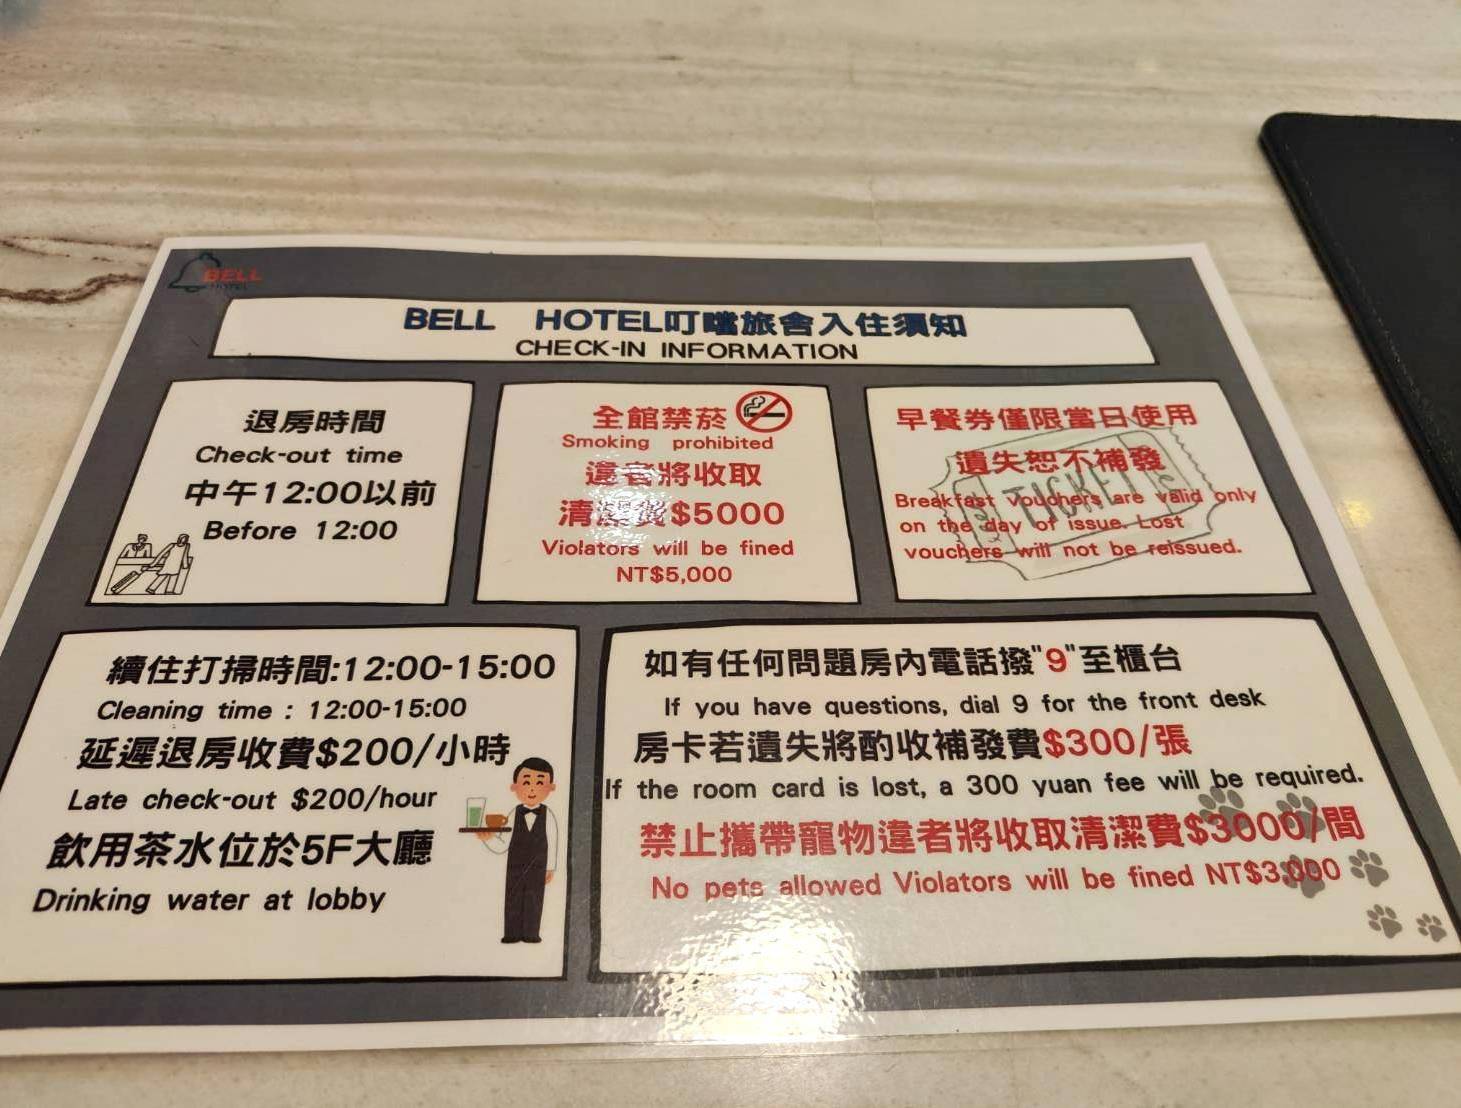 BELL
HOTEL
BELL HOTEL叮噹旅舍入住須知
CHECK-IN INFORMATION
退房時間
Check-out time
中午12:00以前
Before 12:00
全館禁菸
Smoking prohibited
違者將收取
清潔費$5000
Violators will be fined
NT$5,000
早餐券僅限當日使用
遺失恕不補發
Breakfast vouchers are valid only
on the day of issue. Lost
vouchers will not be reissued.
TICKET
續住打掃時間:12:00-15:00
Cleaning time : 12:00-15:00
延遲退房收費$200/小時
Late check-out $200/hour
飲用茶水位於5F大廳
Drinking water at lobby
如有任何問題房內電話撥"9"至櫃台
If you have questions, dial 9 for the front desk
房卡若遺失將酌收補發費$300/張
If the room card is lost, a 300 yuan fee will be required.
禁止攜帶寵物違者將收取清潔費$3000/間
No pets allowed Violators will be fined NT$3,000